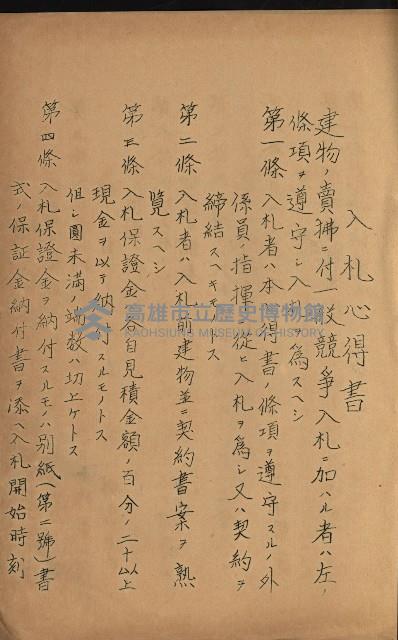 入札心得書
建物ノ賣拂ニ付一般競争入札ニ加ハル者ハ左ノ
條項ヲ遵守シ入札ヲ爲スヘシ
第一條 入札者ハ本心得書ノ條項ヲ遵守スルノ外
係員ノ指揮ニ從ヒ入札ヲ爲シ又ハ契約ヲ
締結スヘキモノトス
第二條 入札者ハ入札前建物並ニ契約書案ヲ熟
覽スヘシ
第三條 入札保證金ハ各自見積金額ノ百分ノ二十以上
現金ヲ以テ納付スルモノトス
但シ圓未満ノ端数ハ切上ケトス
第四條 入札保證金ヲ納付スルモノハ別紙(第二號)書
式ノ保証金納付書ヲ添ヘ入札開始時刻
高雄市立歷史博物館
KAOHSIUNG MUSEUM OF HISTORY